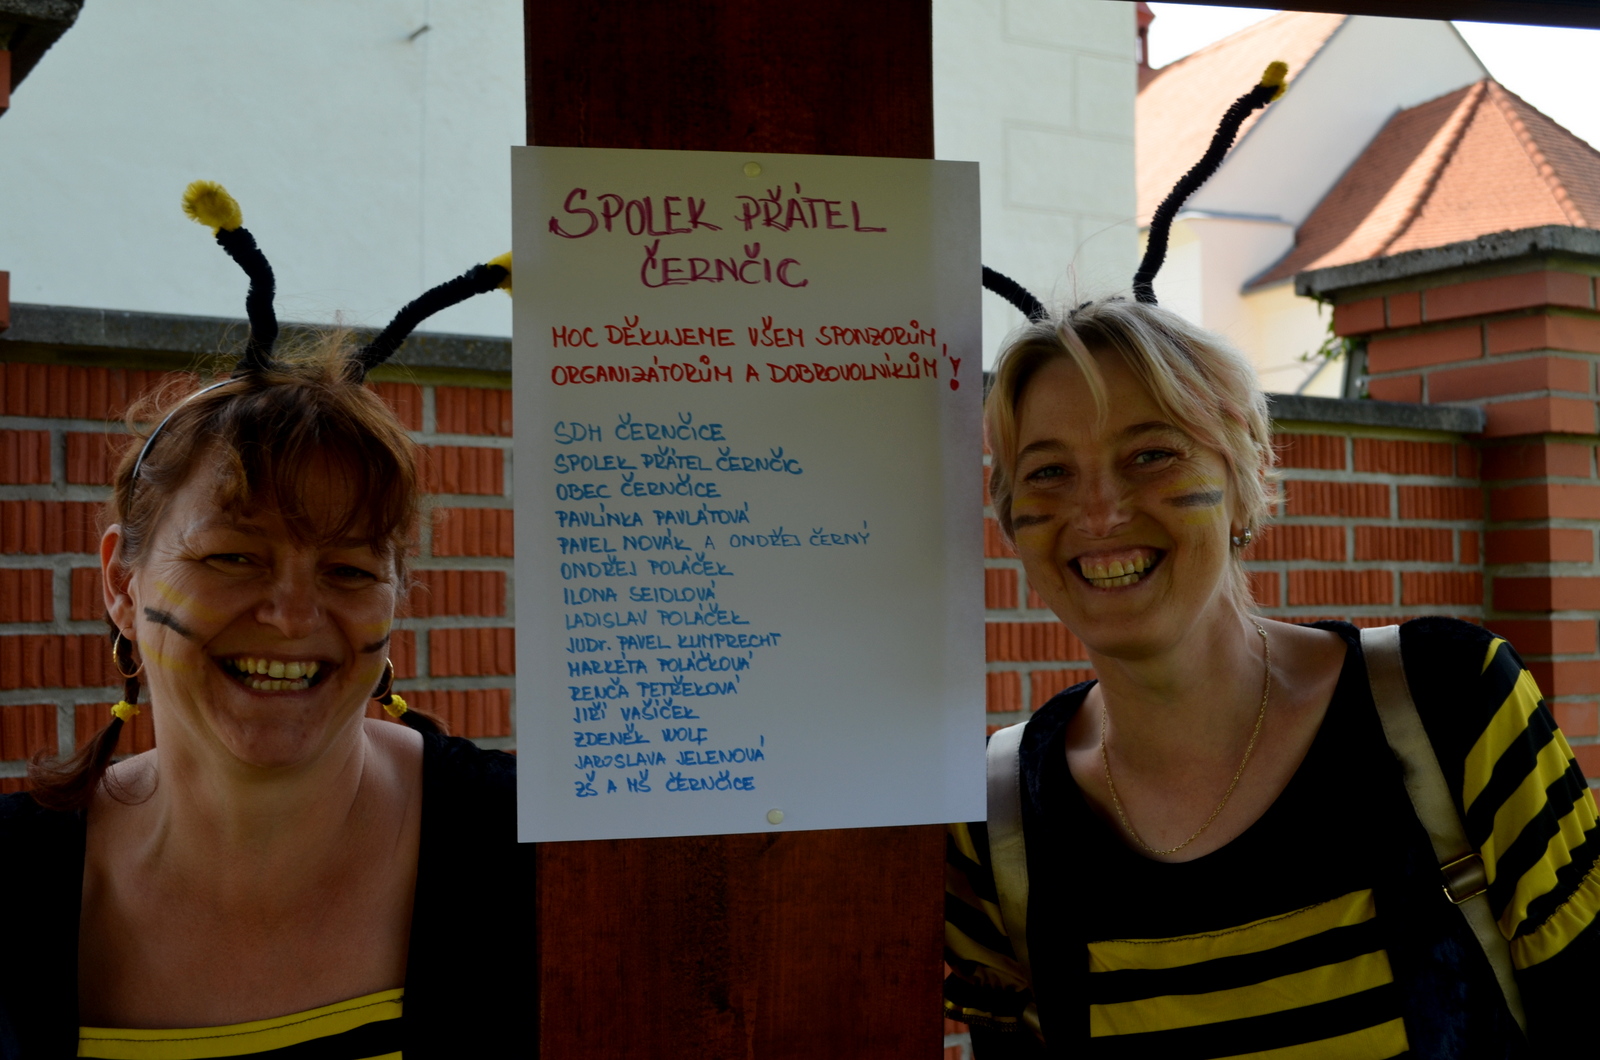 SPOLEK PŘÁTEL
ČERNČIC
MOC DĚKUJEME VŠEM SPONZORŮM,
ORGANIZÁTORŮM A DOBROVOLNÍKŮM!
SDH ČERNČICE
SPOLEK PŘÁTEL ČERNČIC
OBEC ČERNČICE
PAVLÍNKA PAVLÁTOVÁ
PAVEL NOVÁK A ONDŘEJ ČERNÝ
ONDŘEJ POLÁČEK
ILONA SEIDLOVÁ
LADISLAV POLÁČEK
JUDr. PAVEL KUNPRECHT
MARKÉTA POLÁČKOVÁ
RENČA PETŘEKOVÁ
JIŘÍ VAŠÍČEK
ZDENĚK WOLF
JAROSLAVA JELENOVÁ
ZŠ A MŠ ČERNČICE